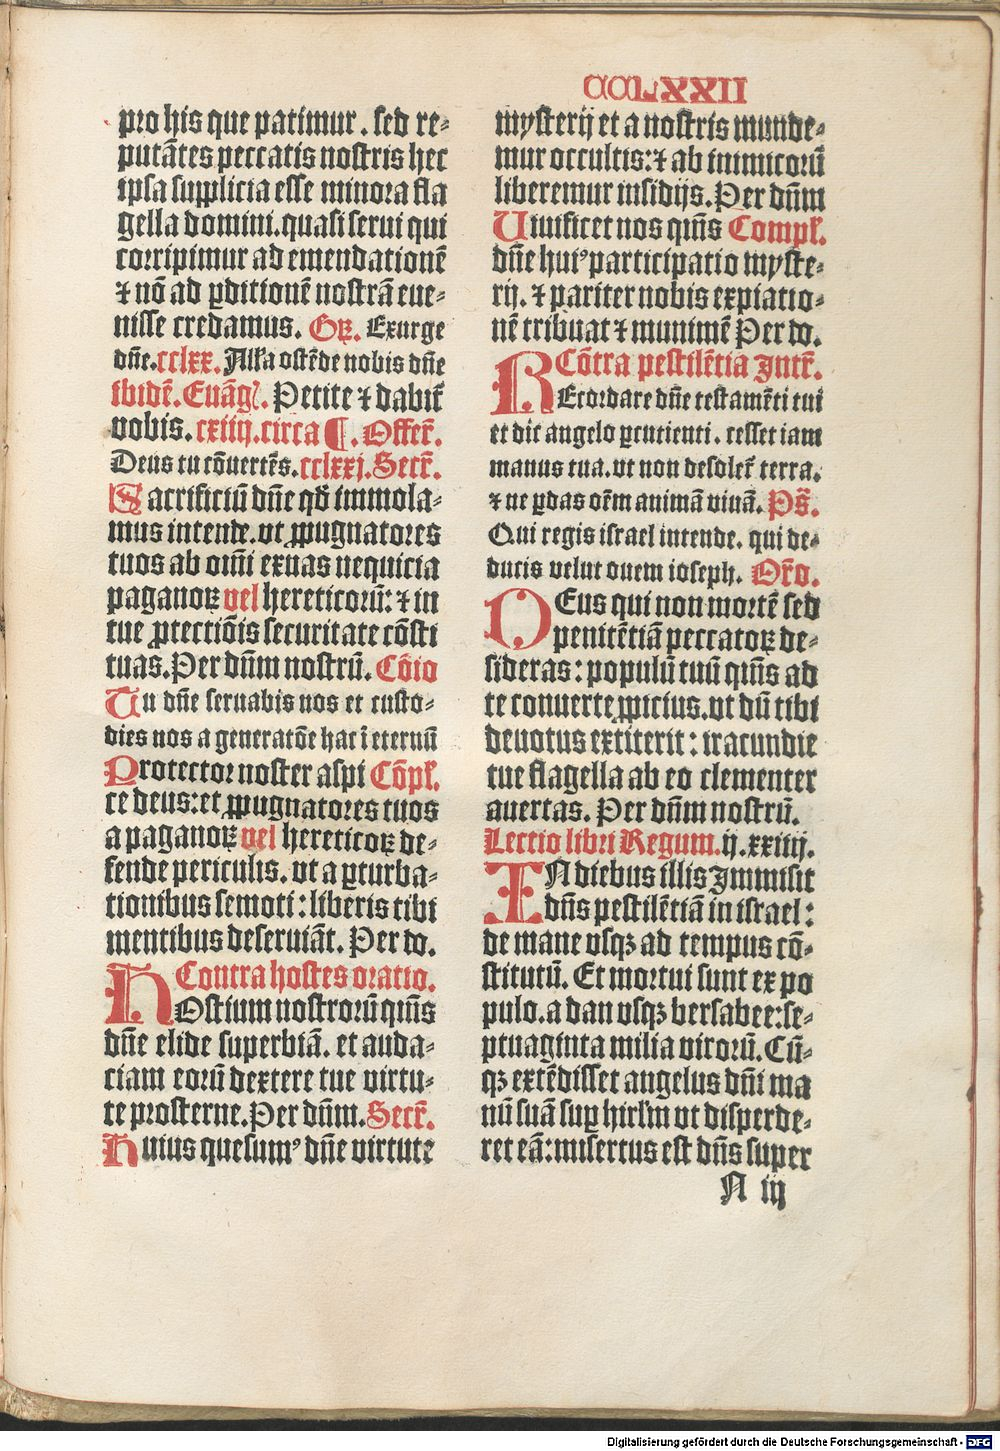 CCLXXII
pro his que patimur. sed re⸗
putãtes peccatis nostris hec
ipsa supplicia esse minora fla
gella domini. quasi serui qui
corripimur ad emendationẽ
⁊ nõ ad ꝑditionẽ nostrã eue⸗
nisse credamus. Gꝝ. Exurge
dñe. cclxx. Alľa ostẽde nobis dñe
ibidẽ. Euãgľ. Petite ⁊ dabit̃
vobis. cxiiij. circa ¶. Offer̃.
Deus tu cõuertẽs. cclxxj. Secr̃.
Sacrificiũ dñe qđ immola⸗
mus intende. vt ꝓpugnatores
tuos ab oĩni exuas nequicia
paganoꝝ vel hereticorũ: ⁊ in
tue ꝓtectiõis securitate cõsti
tuas. Per dñm nostrũ. Cõio
Tu dñe seruabis nos et custo⸗
dies nos a generatõe hac ĩ eternũ
Protector noster aspi Cõpľ.
ce deus: et ꝓpugnatores tuos
a paganoꝝ vel hereticoꝝ de⸗
fende periculis. vt a ꝑturba⸗
tionibus semoti: liberis tibi
mentibus deseruiãt. Per do.
Contra hostes oratio.
HOstium nostrorũ qm̃s
dñe elide superbiã. et auda⸗
ciam eorũ dextere tue virtu⸗
te prosterne. Per dñm. Secr̃.
Huius quesumꝰ dñe virtute
mysterij et a nostris munde⸗
mur occultis: ⁊ ab inimicorũ
liberemur insidijs. Per dñm
Uiuificet nos qm̃s Compľ.
dñe huiꝰ participatio myste⸗
rij. ⁊ pariter nobis expiatio⸗
nẽ tribuat ⁊ munimẽ Per do.
Cõtra pestilẽtia Intr̃.
REcordare dñe testamẽti tui
et dic angelo ꝑcutienti. cesset iam
manus tua. vt non desolet̃ terra.
⁊ ne ꝑdas oẽm animã viuã. Ps̃.
Qui regis israel intende. qui de⸗
ducis velut ouem ioseph. Or̃o.
DEus qui non mortẽ sed
penitẽtiã peccatoꝝ de⸗
sideras: populũ tuũ qm̃s ad
te conuerte ꝓpicius. vt dũ tibi
deuotus extiterit: iracundie
tue flagella ab eo clementer
auertas. Per dñm nostrũ.
Lectio libri Regum. ij. xxiiij.
IN diebus illis Immisit
dñs pestilẽtiã in israel:
de mane vsqꝫ ad tempus cõ⸗
stitutũ. Et mortui sunt ex po
pulo. a dan vsqꝫ bersabee: se⸗
ptuaginta milia virorũ. Cũ⸗
qꝫ extẽdisset angelus dñi ma
nũ suã suꝑ hirľm vt disperde⸗
ret eã: misertus est dñs super
N iij
Digitalisierung gefördert durch die Deutsche Forschungsgemeinschaft - DFG